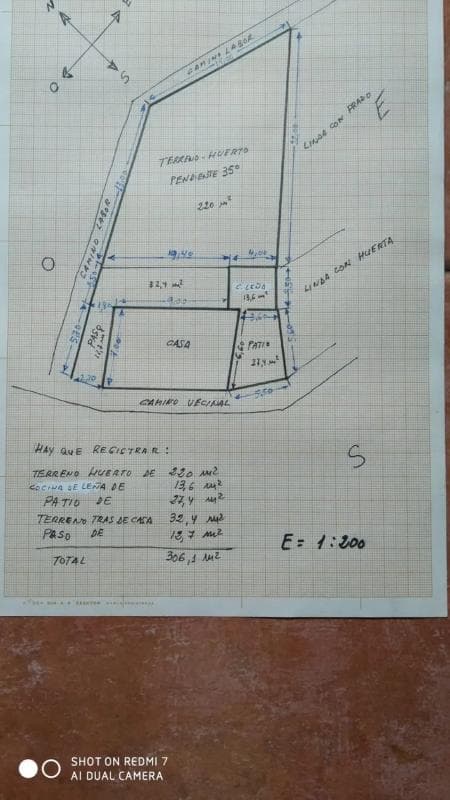 N
E
O
S
CAMINO LABOR
TERRENO-HUERTO
PENDIENTE 35º
220 m²
22,00
LINDA CON PRADO
E
CAMINO LABOR
O
10,40
4,00
3,50
32,4 m²
C. LEÑA
13,6 m²
3,50
LINDA CON HUERTA
1,80
9,00
3,60
5,70
PASO
12,7 m²
7,00
CASA
6,60
PATIO
27,4 m²
2,70
5,50
CAMINO VECINAL
HAY QUE REGISTRAR:
TERRENO HUERTO DE 220 m²
COCINA DE LEÑA DE 13,6 m²
PATIO DE 27,4 m²
TERRENO TRAS DE CASA 32,4 m²
PASO DE 12,7 m²
TOTAL 306,1 m²
S
E = 1:200
SHOT ON REDMI 7
AI DUAL CAMERA